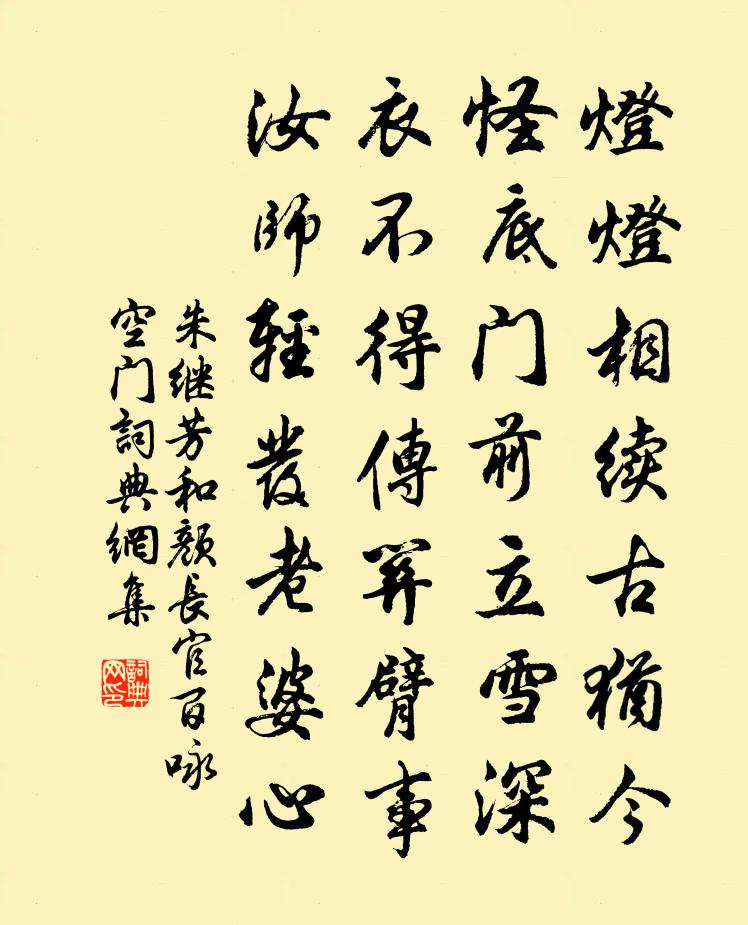 燈燈相续古猶今
怪底门前立雪深
衣不得傳并臂事
汝師輕發老婆心
朱继芳和顏長官百咏
空门詞典網集
詞典
网印